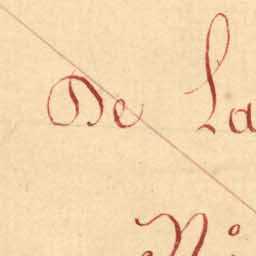 De La
Ni